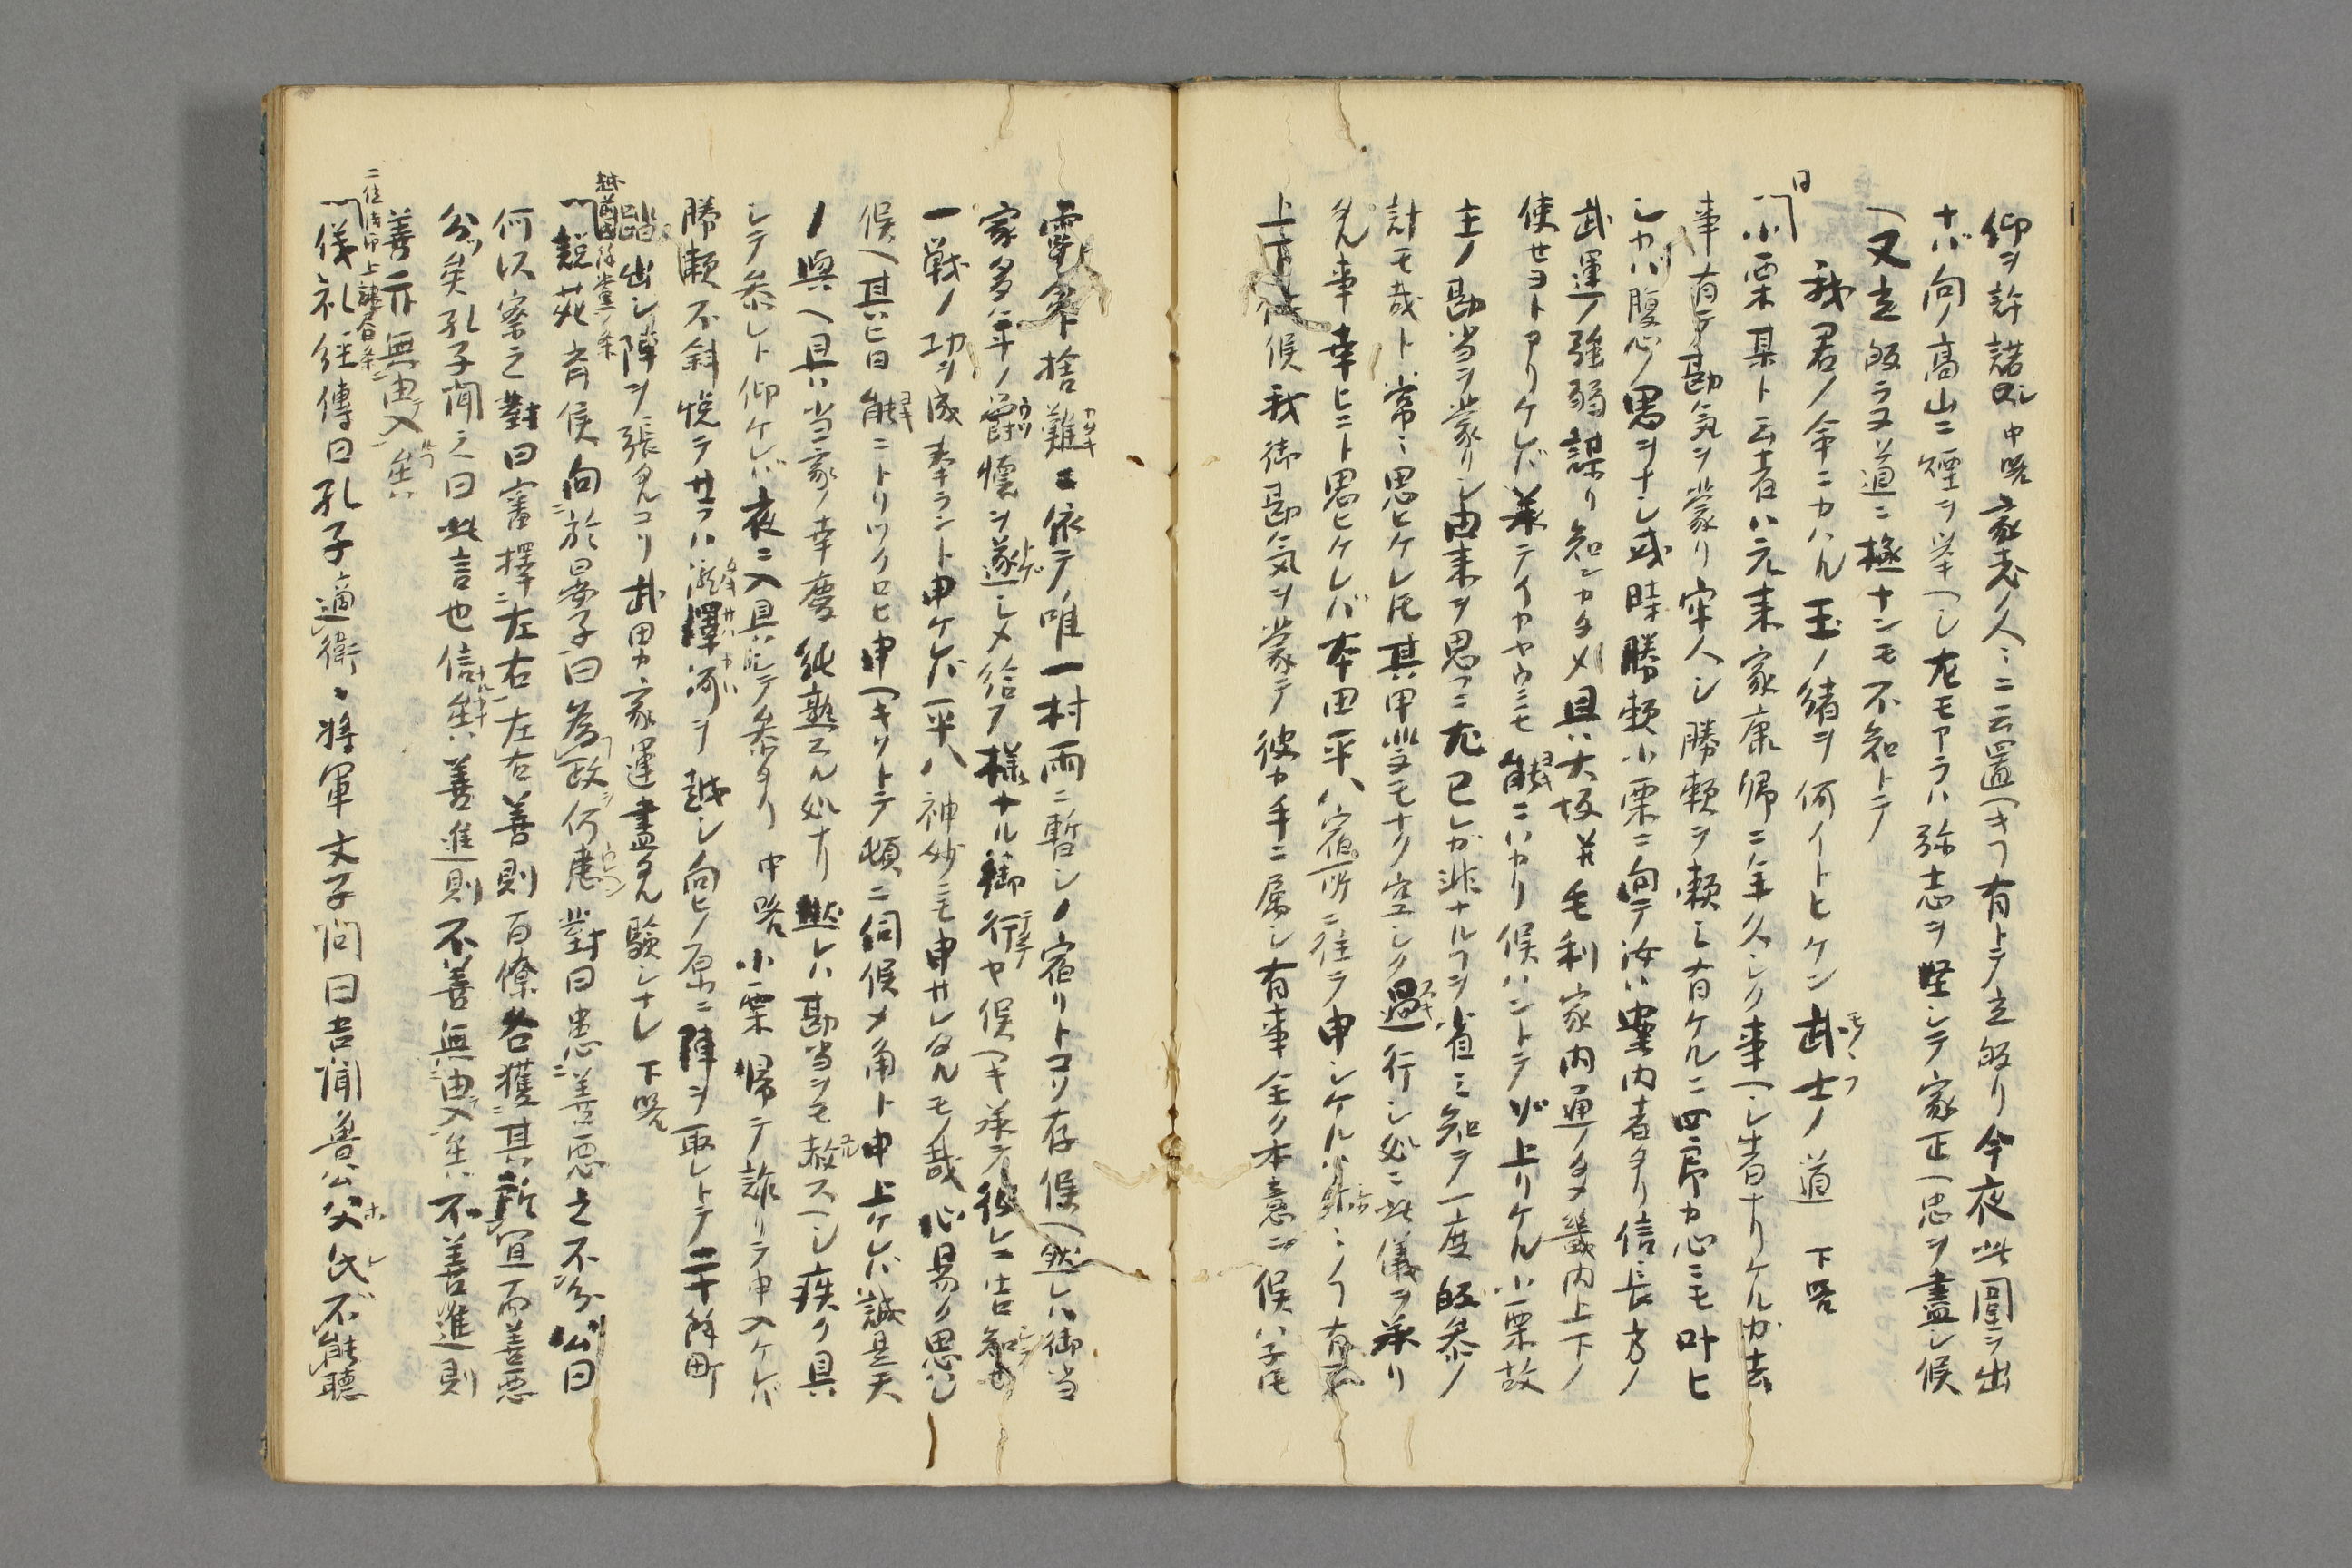 仰ヲ許諾シ 中略 家老ノ人ミニ云置ヘキ有トテ立皈リ今夜此圍ヲ出
ナバ向ノ高山ニ煙ヲ挙ヘシ左モアラハ弥志ヲ堅シテ家正ヘ忠ヲ盡シ候
ヘ又立皈ラヌ道ニ極ナンモ不知トテ
我君ノ命ニカハル玉ノ緒ヲ何イトヒケン武士ノ道 下略
同
小栗某ト云者ハ元来家康卿ニ年久シク事ヘシ者ナリケルガ去
事有テ勘気ヲ蒙リ牢人シ勝頼ヲ頼ミ有ケルニ四郎カ心ニモ叶ヒ
シカバ腹心ノ思ヲナシ或時勝頼小栗ニ向テ汝ハ案内者タリ信長方ノ
武運ノ強弱謀リ知ンカタメ且ハ大坂并毛利家内通ノタメ畿内上下ノ
使セヨトアリケレバ承テイカヤウニモ能ニハカリ候ハントテゾ上リケル小栗故
主ノ勘当ヲ蒙リシ由来ヲ思フニ尤己レガ非ナルヲ省ミ知テ一度皈参ノ
計モ哉ト常ニ思ヒケレ𪜈其甲斐モナク空シク過行シ処ニ此儀ヲ承リ
タル事幸ヒニト思ヒケレバ本田平八宿所ニ往テ申シケルハ
上候我御勘気ヲ蒙テ彼カ手ニ属シ有事全ク本意ニ候ハ子𪜈
露命捨難ニ依テノ唯一村雨ニ暫シノ宿リトコソ存候ヘ然レハ御当
家多年ノ欝懐ヲ遂シメ給フ様ナル御行ヤ候ヘキ承テ彼レニ告知セ
一戦ノ功ヲ成奉ラント申ケレバ平八神妙ニモ申サレタルモノ哉心易ク思ハレ
候ヘ其ハヒ日能ニトリツクロヒ申ヘキソトテ頓ニ伺候メ角ト申上ケレバ誠是天
ノ與ヘ且ハ当家ノ幸慶純熟スル処ナリ然レハ勘当ヲモ赦スヘシ疾ク具
シテ参レト仰ケレバ夜ニ入具シテ参タリ 中略 小栗帰テ詐リテ申入ケレバ
勝頼不斜悦テサラハ瀧澤河ヲ越シ向ヒノ原ニ陣ヲ取レトテ二十餘町
踏出シ陣ヲ張タルコソ武田カ家運盡タル験シナレ 下略
越前國餘黨ノ条
説苑斉侯向於晏子曰為政何患對曰患善悪之不分公曰
何以察之對曰審擇左右左右善則百僚各獲其所宜而善悪
分矣孔子聞之曰此言也信矣善進則不善無由入矣不善進則
善亦無由入矣
儀礼経傳曰孔子適衛将軍文子問曰吾聞魯公父氏不能聽